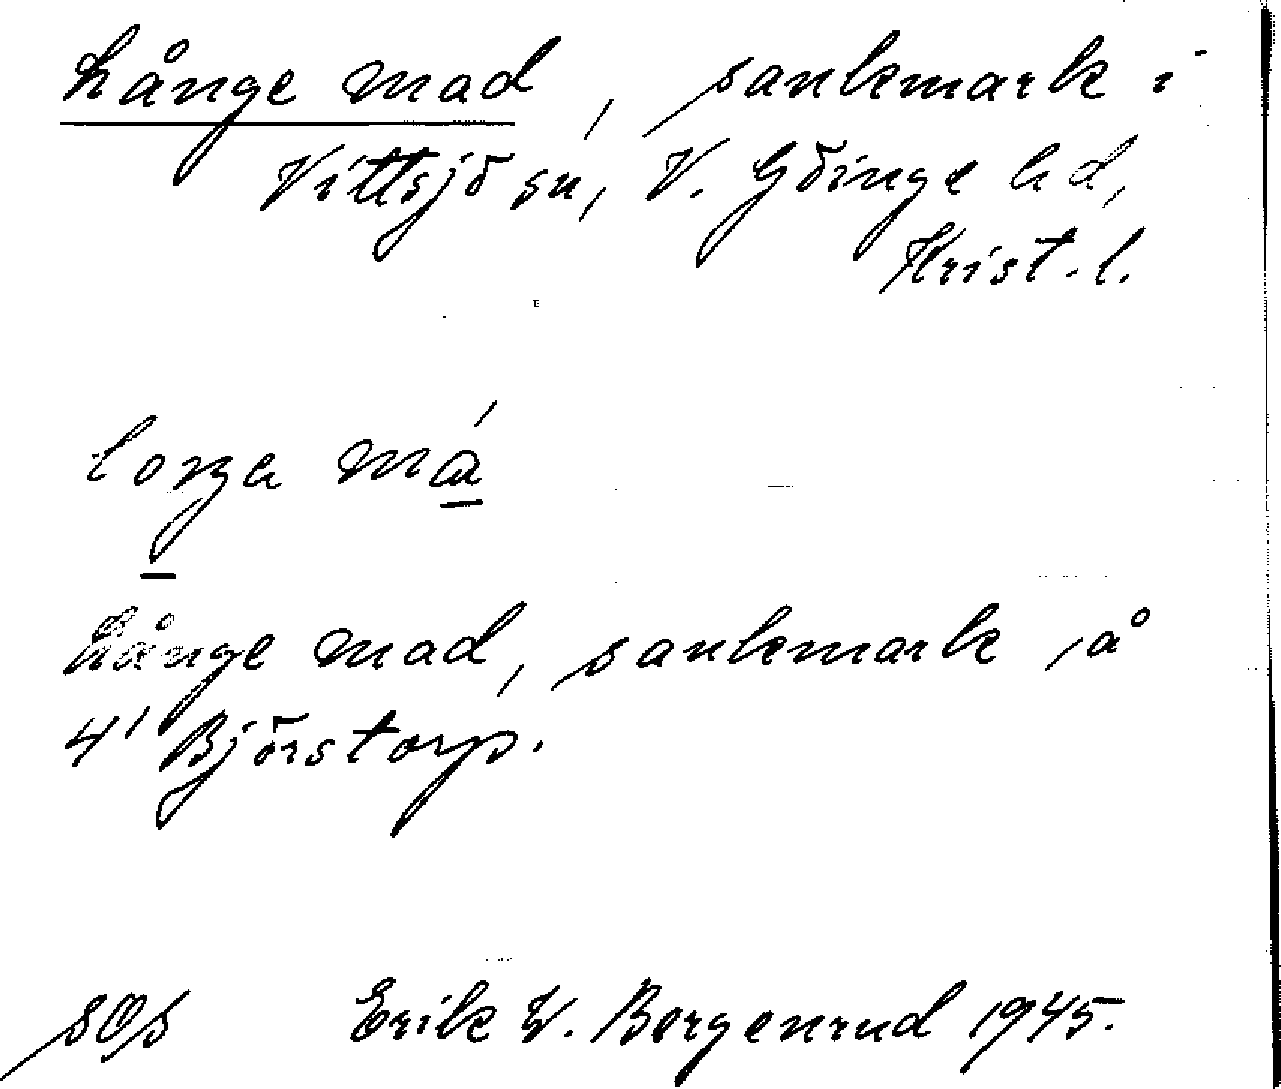 Långe mad, sankmark i
Vittsjö sn, V. Göinge hd,
Krist. l.
loŋa má
Långe mad, sankmark, å
4¹ Björstorp.
SOS Erik W. Borgenrud 1945.